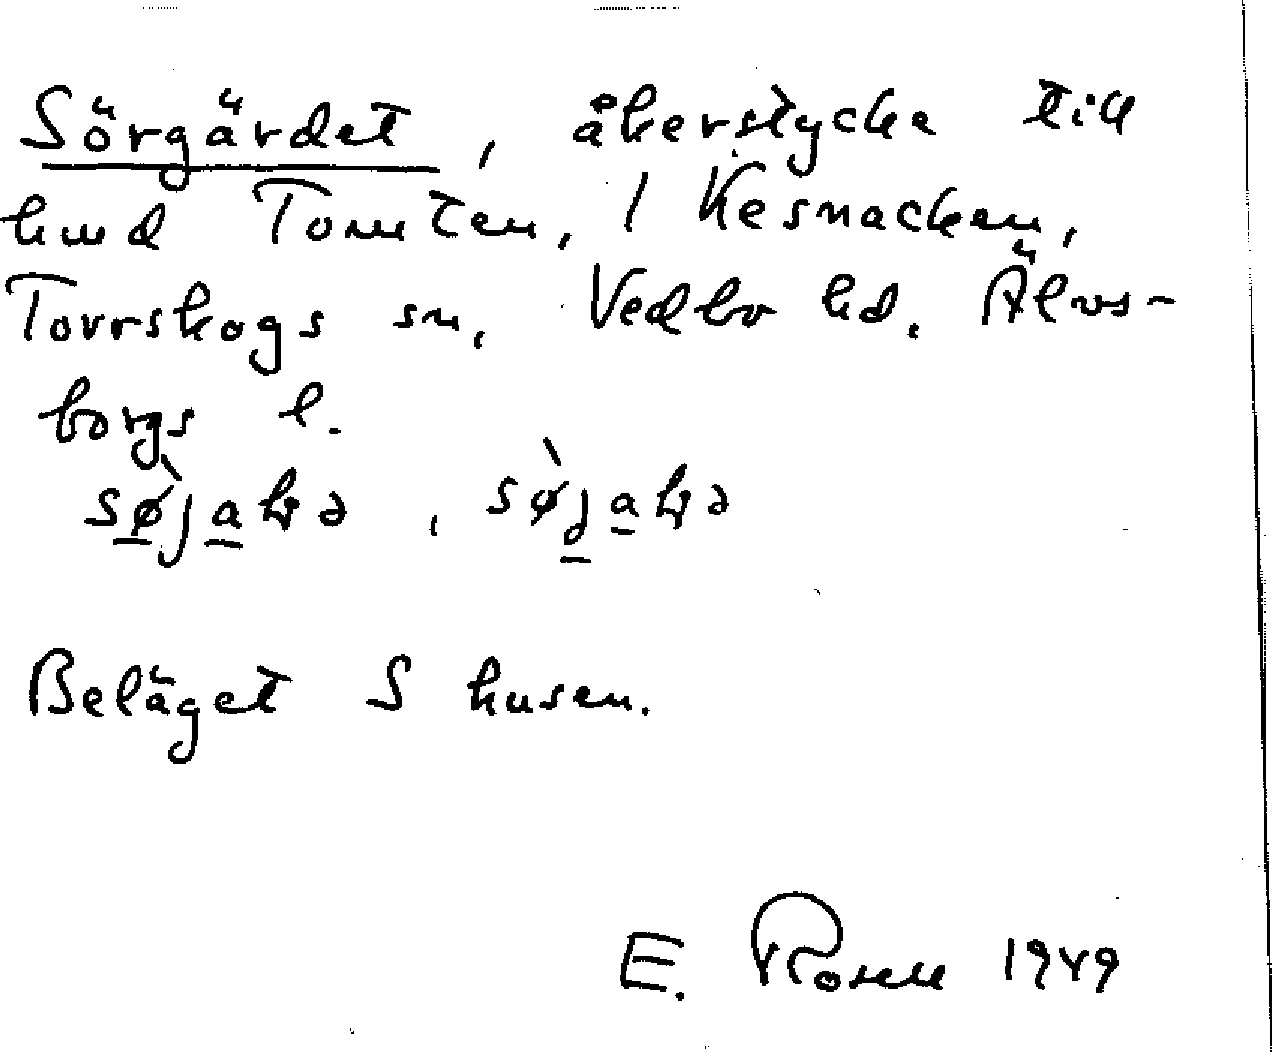 Sörgärdet, åkerstycke till
hmd Tomten, 1 Kesnacken,
Torrskogs sn, Vedbo hd. Älvs-
borgs l.
Beläget S husen.
E. Rosell 1949